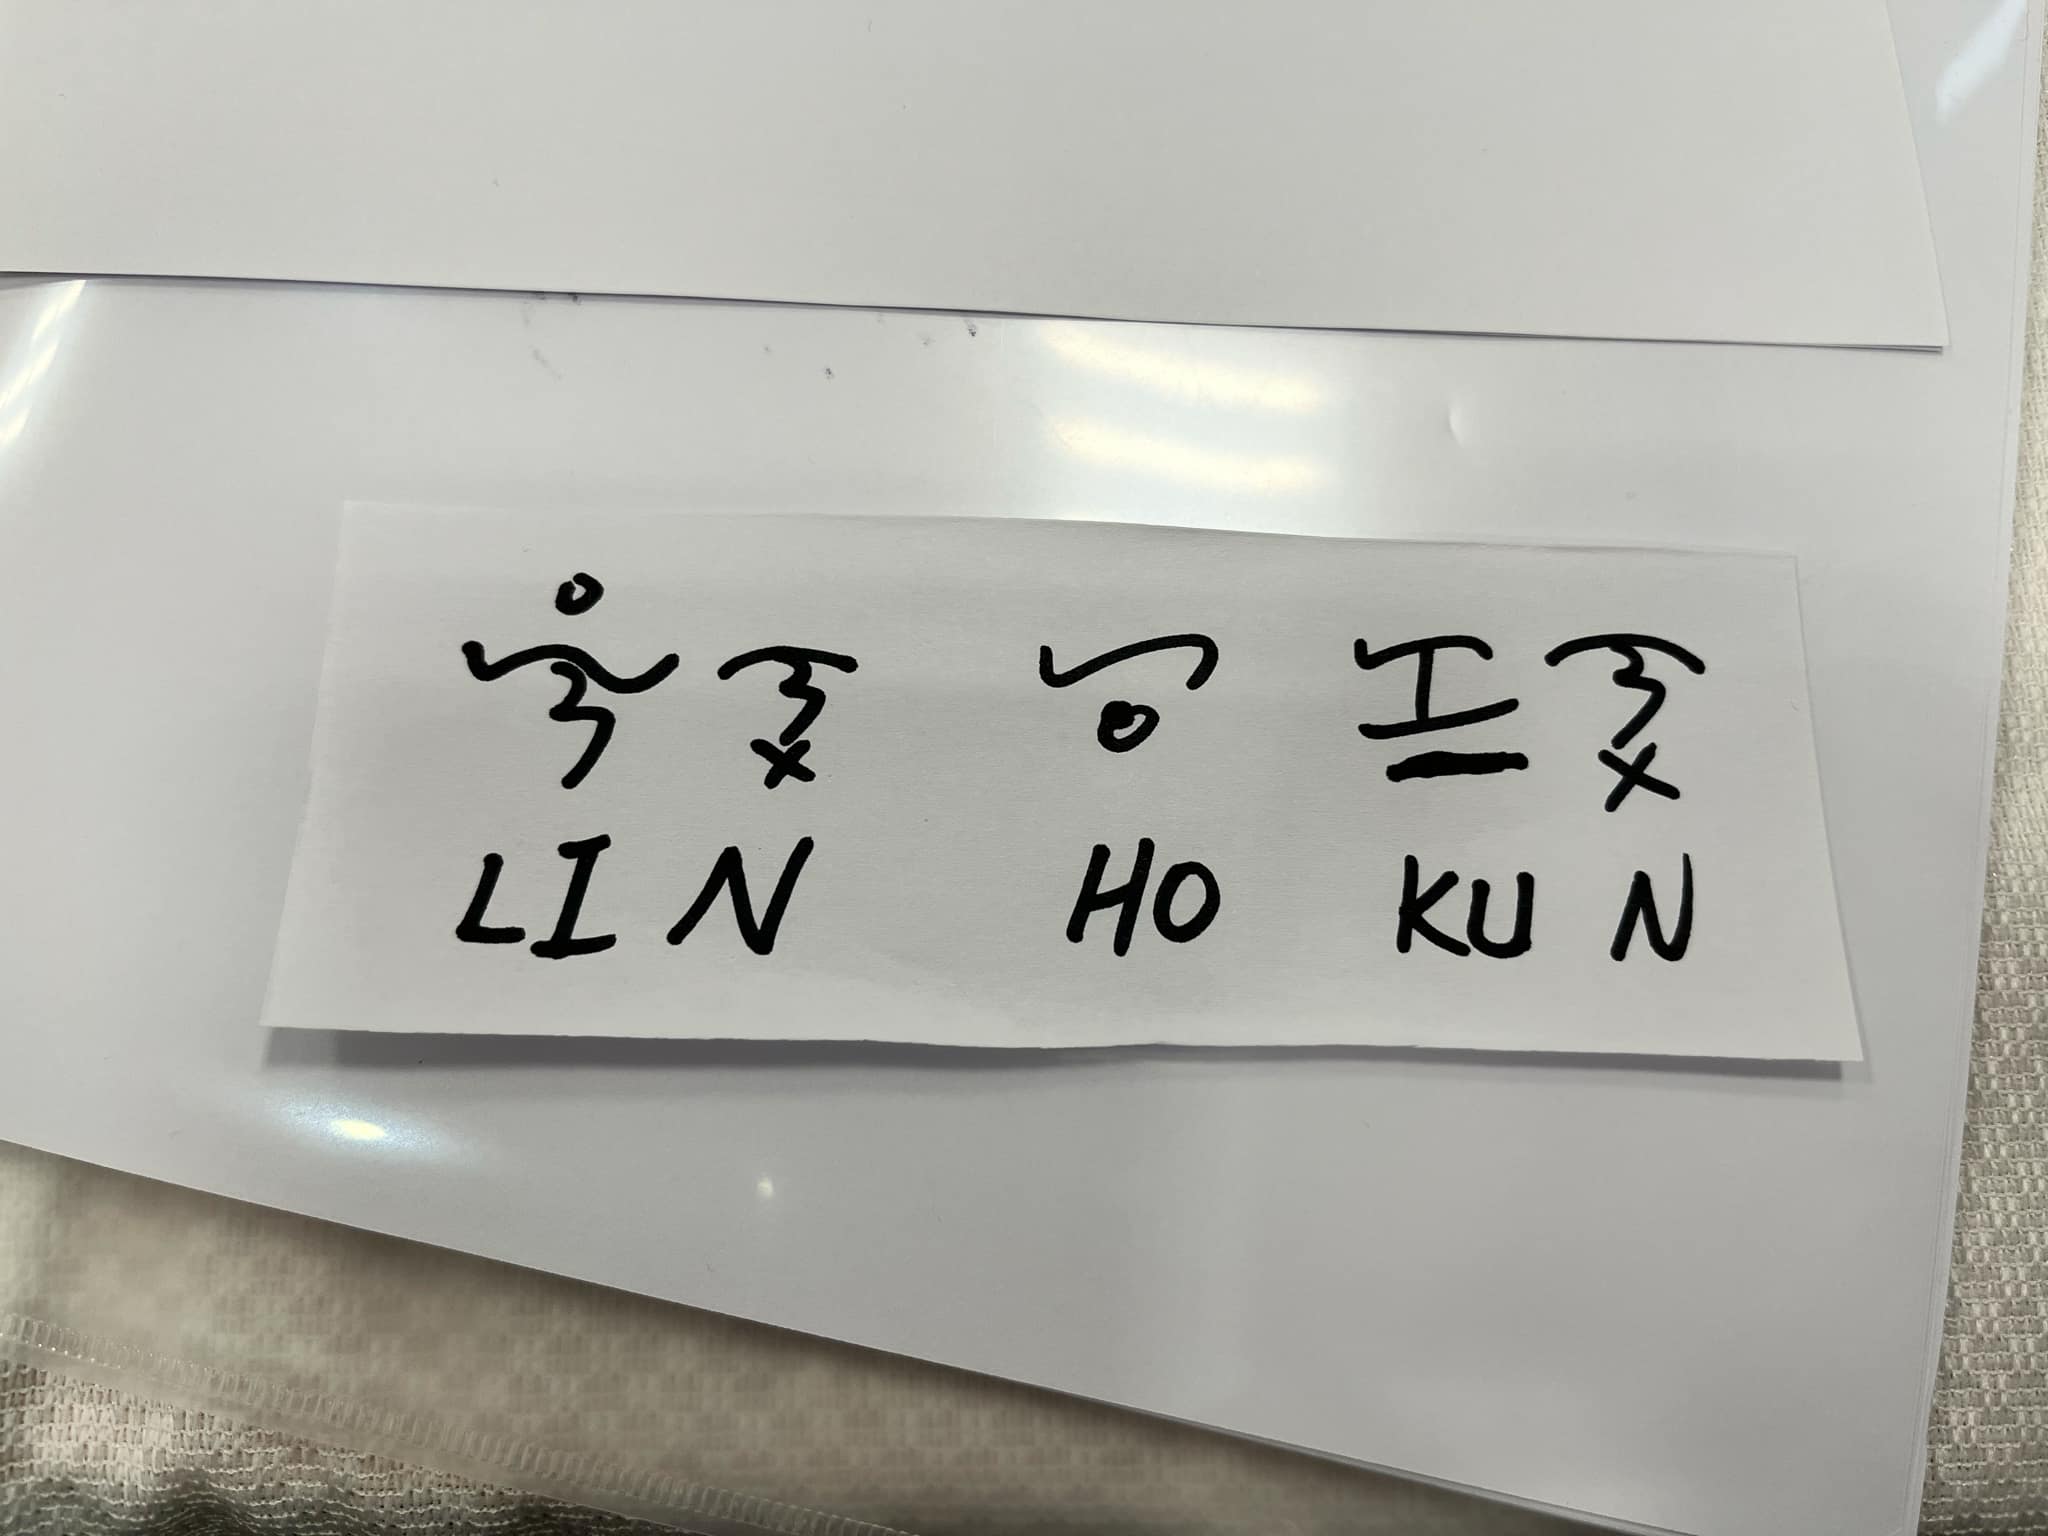 ᜎᜒᜈ᜔ ᜑᜓ ᜃᜓᜈ᜔
LIN HO KUN